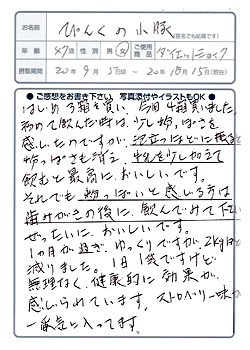 お名前 ぴんくの小豚 (匿名でも結構です)
年齢 47才 性別 男・女 ご使用商品 ダイエットシェイク
摂取期間 20年9月5日頃〜20年10月15日(現在)
●ご感想をお書き下さい。写真添付やイラストもOK●
はじめ3箱を買い、今回4箱買いました。
初めて飲んだ時は、少し粉っぽさを
感じたのですが、泡立つほどに振ると
粉っぽさも消え、牛乳を少し加えて
飲むと最高に、おいしいです。
それでも粉っぽいと感じる方は
歯みがきの後に、飲んでみて下さい
ぜったいに、おいしいです。
1ヵ月が過ぎ、ゆっくりですが、2kgほど
減りました。1日1袋ですけど
無理なく、健康的に効果が
感じられています。ストロベリー味が
一番気に入ってます。